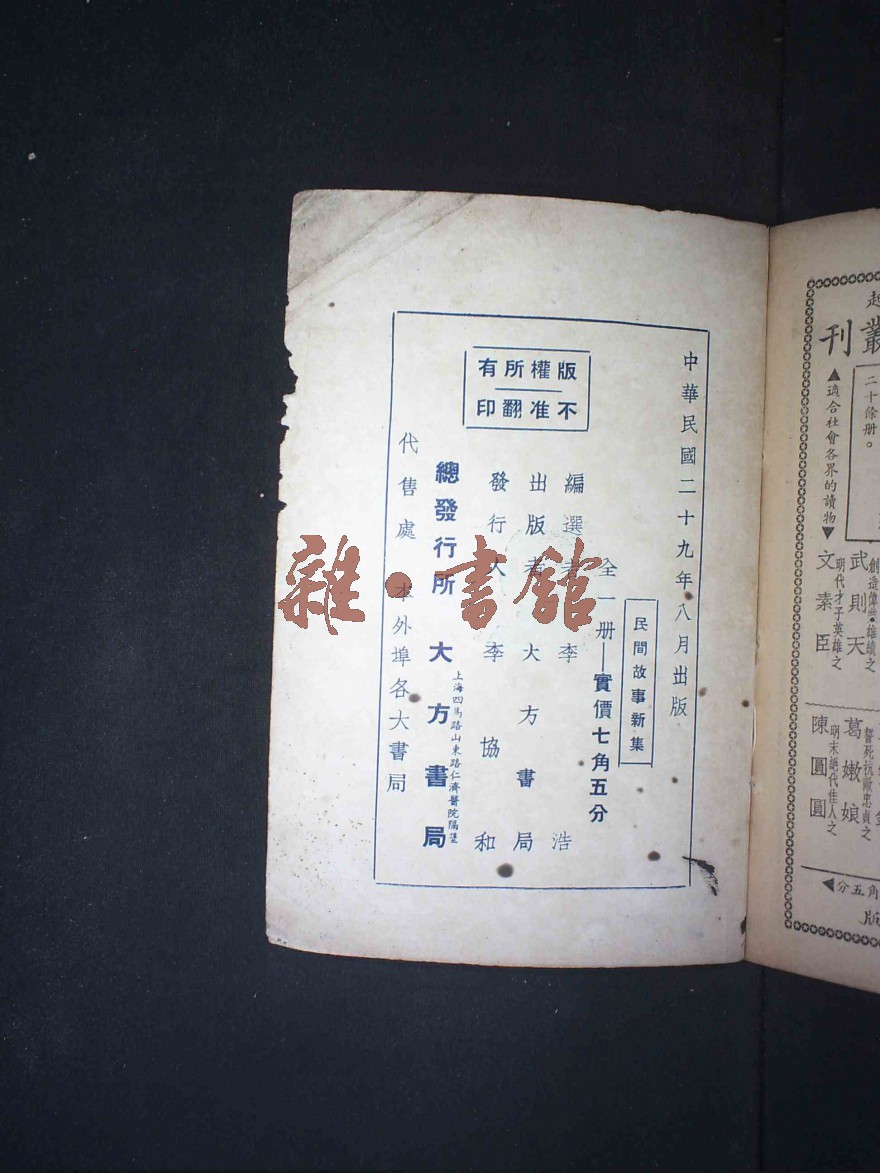 中華民國二十九年八月出版
民間故事新集
全一册——實價七角五分
編選者 李浩
出版者 大方書局
發行人 李協和
版權所有
不准翻印
總發行所 大方書局
上海四馬路山東路仁濟醫院隔壁
代售處 本外埠各大書局
雜·書館
叢刊
二十餘册。
▲適合社會各界的讀物▼
武則天
明代才子英雄之
文素臣
葛嫩娘
明末絕代佳人之
陳圓圓
角五分▲
版